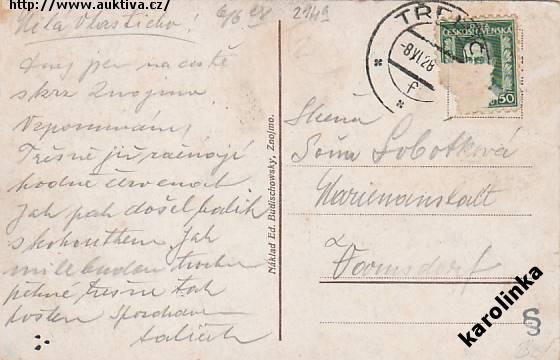 http://www.auktiva.cz/
6/6 28
2149
Milá Vlastičko!
Dnes jsem na cestě
skrz Znojmo
Vzpomínám!
Třešně již začínají
hodně červenat
Jak pak došel balík
s kohoutkem, jak
mile budou trochu
pěkné třešně tak
pošlem Spozdravem
tatíček
Náklad Ed. Budischowsky, Znojmo.
TŘEB
-8.VI.28
f
ČESKOSLOVENSKÁ
50
Slečna
Soňa Sobotková
Marienanstalt
Warnsdorf
§
karolinka